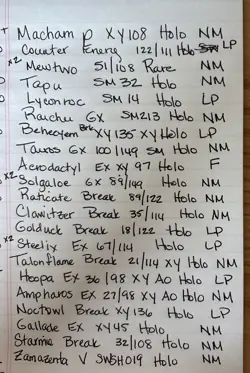 Machamp XY108 Holo NM
Counter Energy 122/111 Holo LP
x2 Mewtwo 51/108 Rare NM
Tapu SM 32 Holo NM
Lycanroc SM 14 Holo LP
Raichu GX SM213 Holo NM
Beheeyem Brk XY135 XY Holo LP
Tauros GX 100/149 SM Holo NM
Aerodactyl Ex XY 97 Holo F
x2 Solgaloe GX 89/149 Holo NM
Raticate Break 89/122 Holo NM
Clawitzer Break 35/114 Holo NM
Golduck Break 18/122 Holo LP
x2 Steelix Ex 67/114 Holo LP
Talonflame Break 21/114 XY Holo NM
Hoopa EX 36/98 XY AO Holo LP
Ampharos EX 27/98 XY AO Holo NM
Noctowl Break XY136 Holo LP
Gallade EX XY45 Holo NM
Starmie Break 32/108 Holo NM
Zamazenta V SWSH019 Holo NM